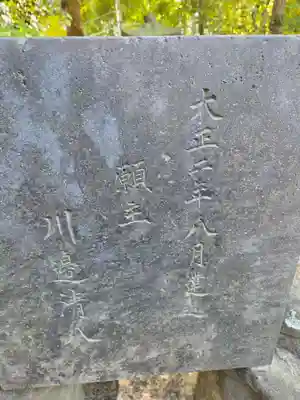 大正二年八月建之
願主
川邉清八